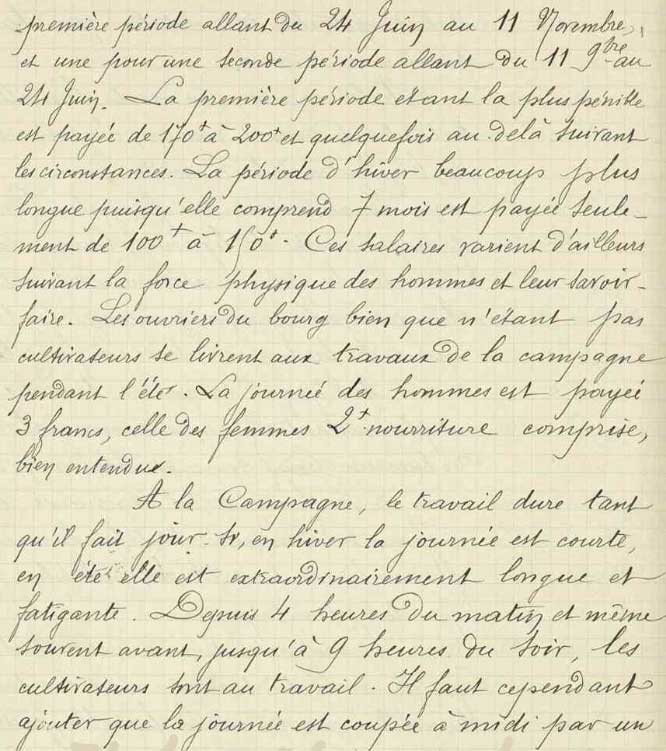 première période allant du 24 Juin au 11 Novembre,
et une pour une seconde période allant du 11 9bre au
24 Juin. La première période étant la plus pénible
est payée de 170f à 200f et quelquefois au delà suivant
les circonstances. La période d'hiver beaucoup plus
longue puisqu'elle comprend 7 mois est payée seule-
ment de 100f à 150f. Ces salaires varient d'ailleurs
suivant la force physique des hommes et leur savoir-
faire. Les ouvriers du bourg bien que n'étant pas
cultivateurs se livrent aux travaux de la campagne
pendant l'été. La journée des hommes est payée
3 francs, celle des femmes 2f nourriture comprise,
bien entendue.
A la Campagne, le travail dure tant
qu'il fait jour. Si, en hiver la journée est courte,
en été elle est extraordinairement longue et
fatigante. Depuis 4 heures du matin et même
souvent avant, jusqu'à 9 heures du soir, les
cultivateurs sont au travail. Il faut cependant
ajouter que la journée est coupée à midi par un